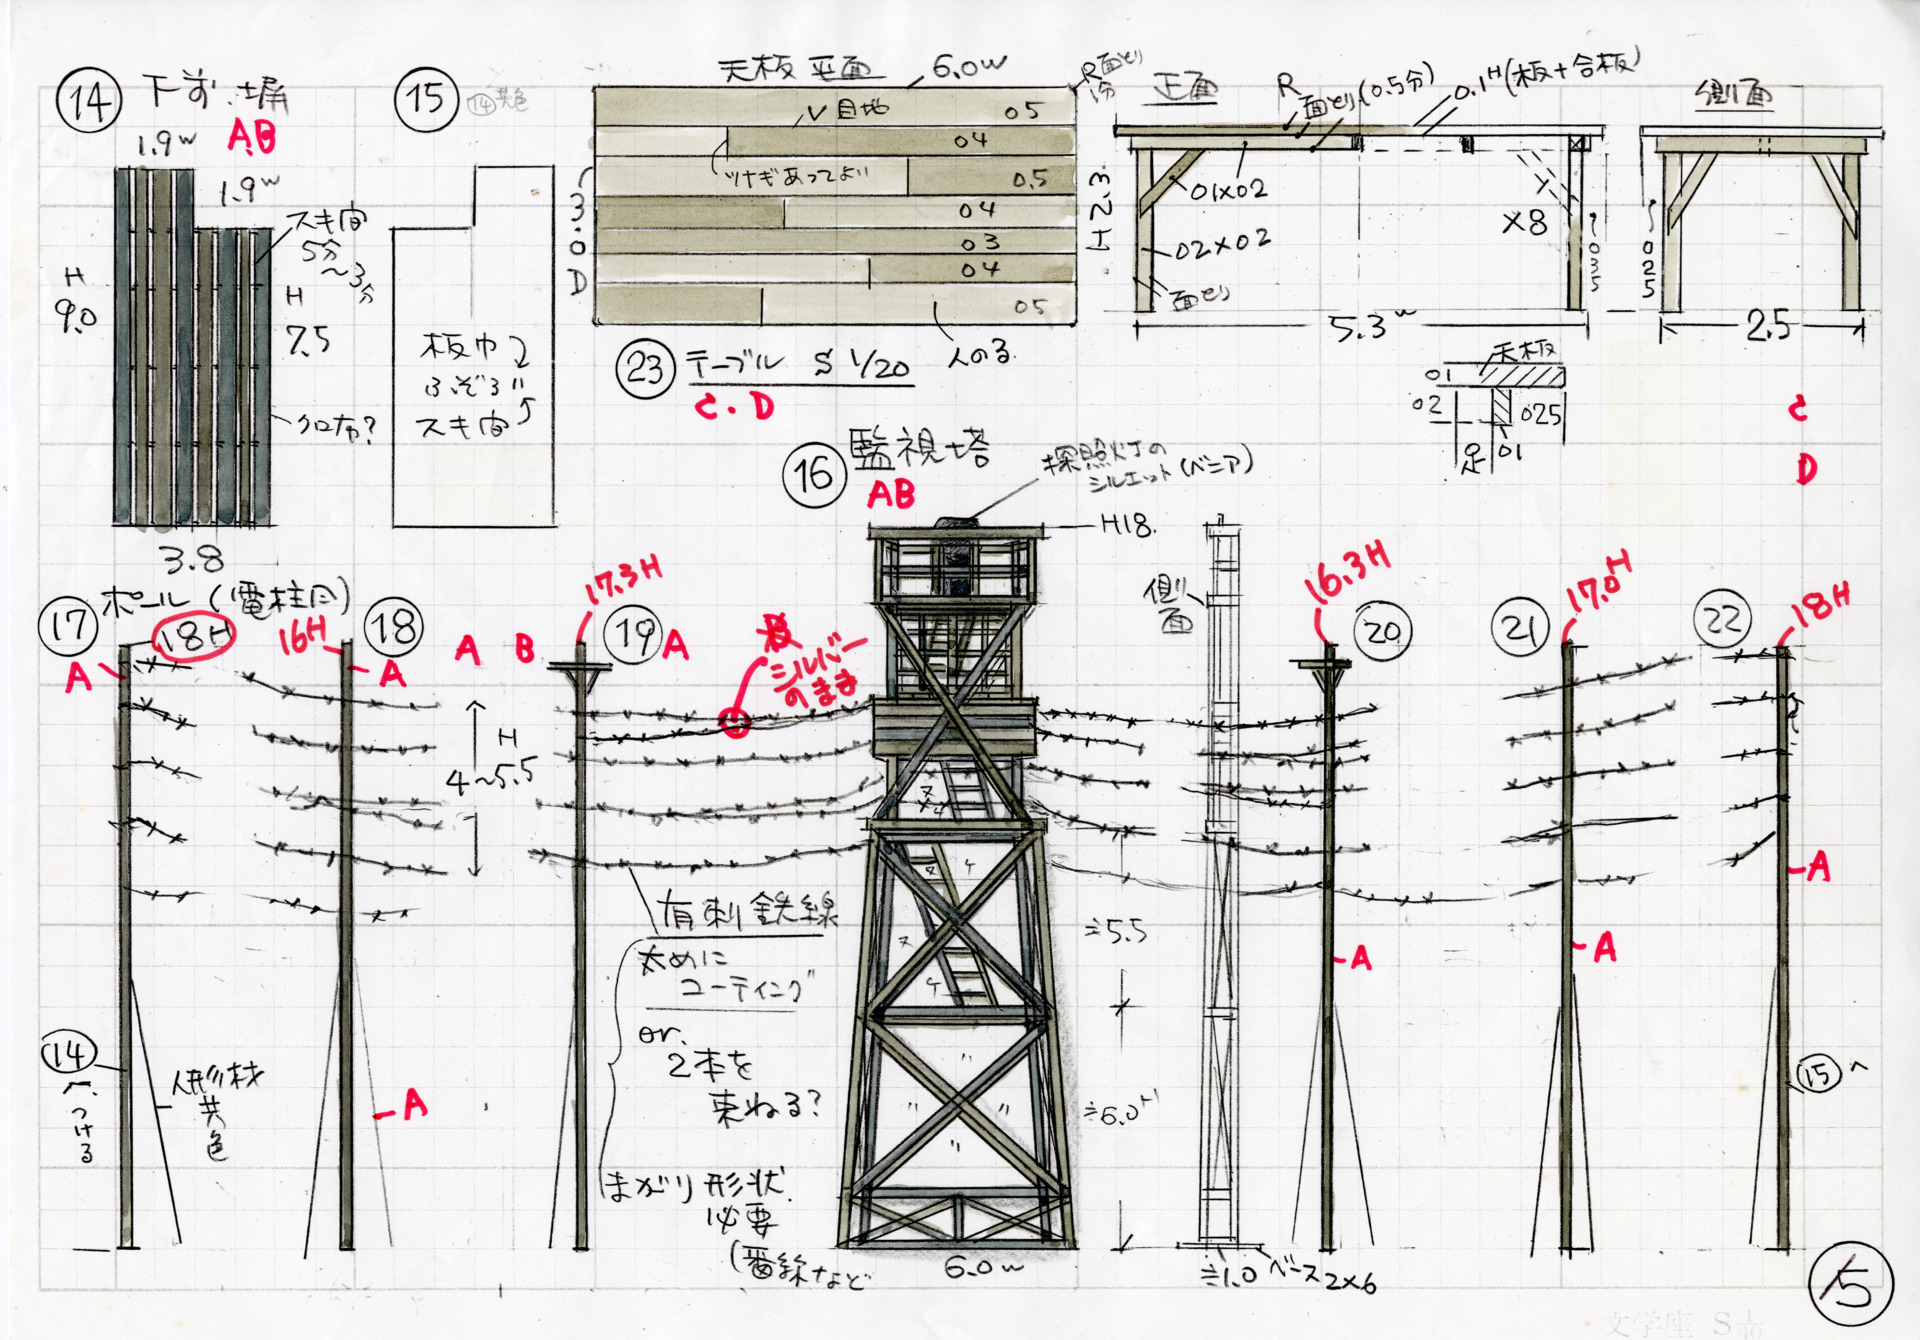 ⑭ 下手.塀
AB
1.9w
1.9w
スキ間
5分
〜3分
H
9.0
H
7.5
クロ布?
3.8
⑮ ⑭共色
板巾
ふぞろい
スキ間
天板平面
6.0w
R面とり
1分
V目地
05
04
ツナギあってよい
0.5
04
03
04
05
3.0D
人のる
㉓ テーブル S 1/20
C.D
正面
R
面とり(0.5分)
0.1H(板+合板)
側面
H2.3
01×02
02×02
面とり
×8
〜035
〜025
5.3w
2.5
天板
01
02
025
足
01
C
D
⑯ 監視塔
AB
探照灯の
シルエット(ベニア)
H18.
側面
⑰ ポール(電柱風)
18H
A
16H
⑱
A
A B
17.3H
⑲
A
シルバー
のまま
16.3H
⑳
㉑
17.0H
㉒
18H
H
4〜5.5
ヌケ
ヌ
ケ
ヌ
ケ
有刺鉄線
太めに
コーティング
or.
2本を
束ねる?
まがり形状
必要
(番線など
≒5.5
≒6.0H
A
A
A
A
⑭
へつける
人形材
共色
⑮へ
6.0w
≒1.0
ベース2×6
15
文学座 S 1/10